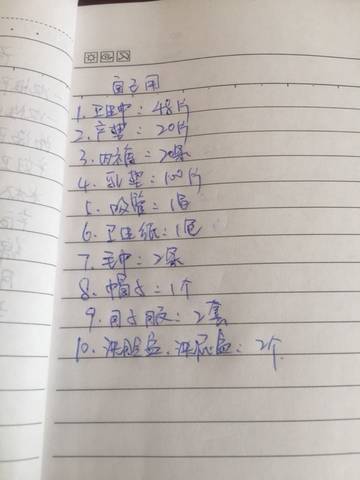 宝妈用
1. 卫生巾：48片
2. 产垫：20片
3. 内裤：20条
4. 乳垫：100片
5. 吸管：1包
6. 卫生纸：1包
7. 毛巾：2条
8. 帽子：1个
9. 月子服：2套
10. 洗脸盆、洗屁盆：2个